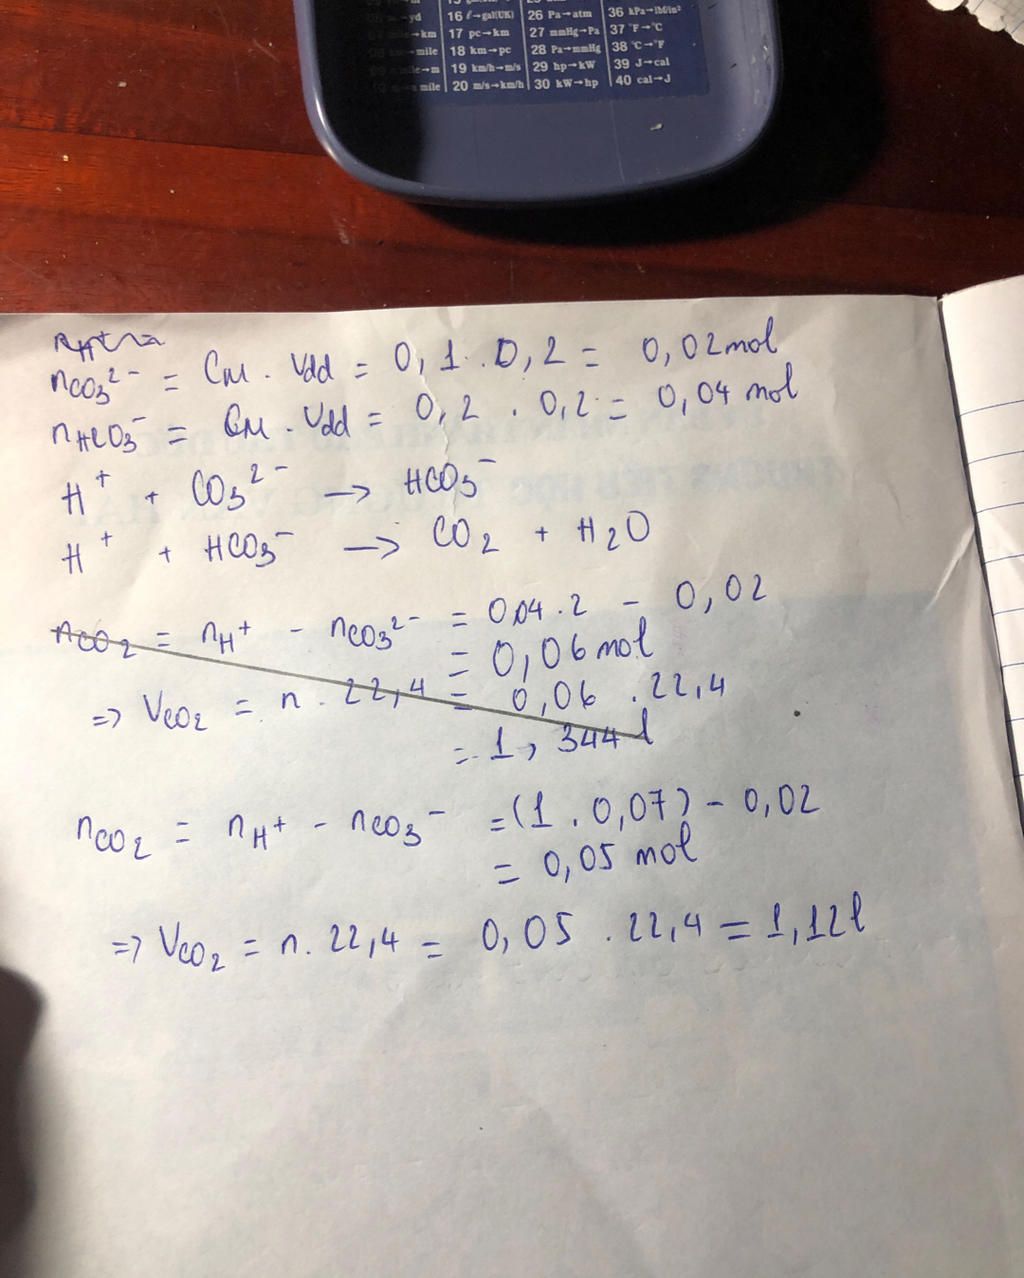 16 ℓ→gal(UK) 26 Pa→atm 36 kPa→lbf/in²
17 pc→km 27 mmHg→Pa 37 °F→°C
18 km→pc 28 Pa→mmHg 38 °C→°F
19 km/h→m/s 29 hp→kW 39 J→cal
20 m/s→km/h 30 kW→hp 40 cal→J
nCO₃²⁻ = CM . Vdd = 0,1 . 0,2 = 0,02 mol
nHCO₃⁻ = CM . Vdd = 0,2 . 0,2 = 0,04 mol
H⁺ + CO₃²⁻ → HCO₃⁻
H⁺ + HCO₃⁻ → CO₂ + H₂O
nCO₂ = nH⁺ - nCO₃²⁻ = 0,04 . 2 - 0,02
= 0,06 mol
=> VCO₂ = n . 22,4 = 0,06 . 22,4
= 1,344 l
nCO₂ = nH⁺ - nCO₃⁻ = (1 . 0,07) - 0,02
= 0,05 mol
=> VCO₂ = n. 22,4 = 0,05 . 22,4 = 1,12l